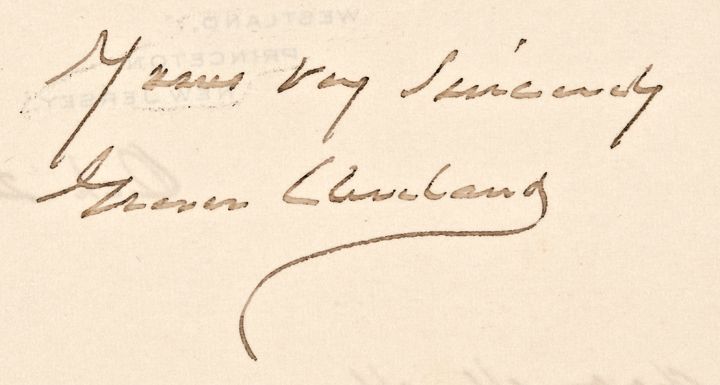 WESTLAND,
PRINCETON
NEW JERSEY.
Yours very Sincerely
Grover Cleveland